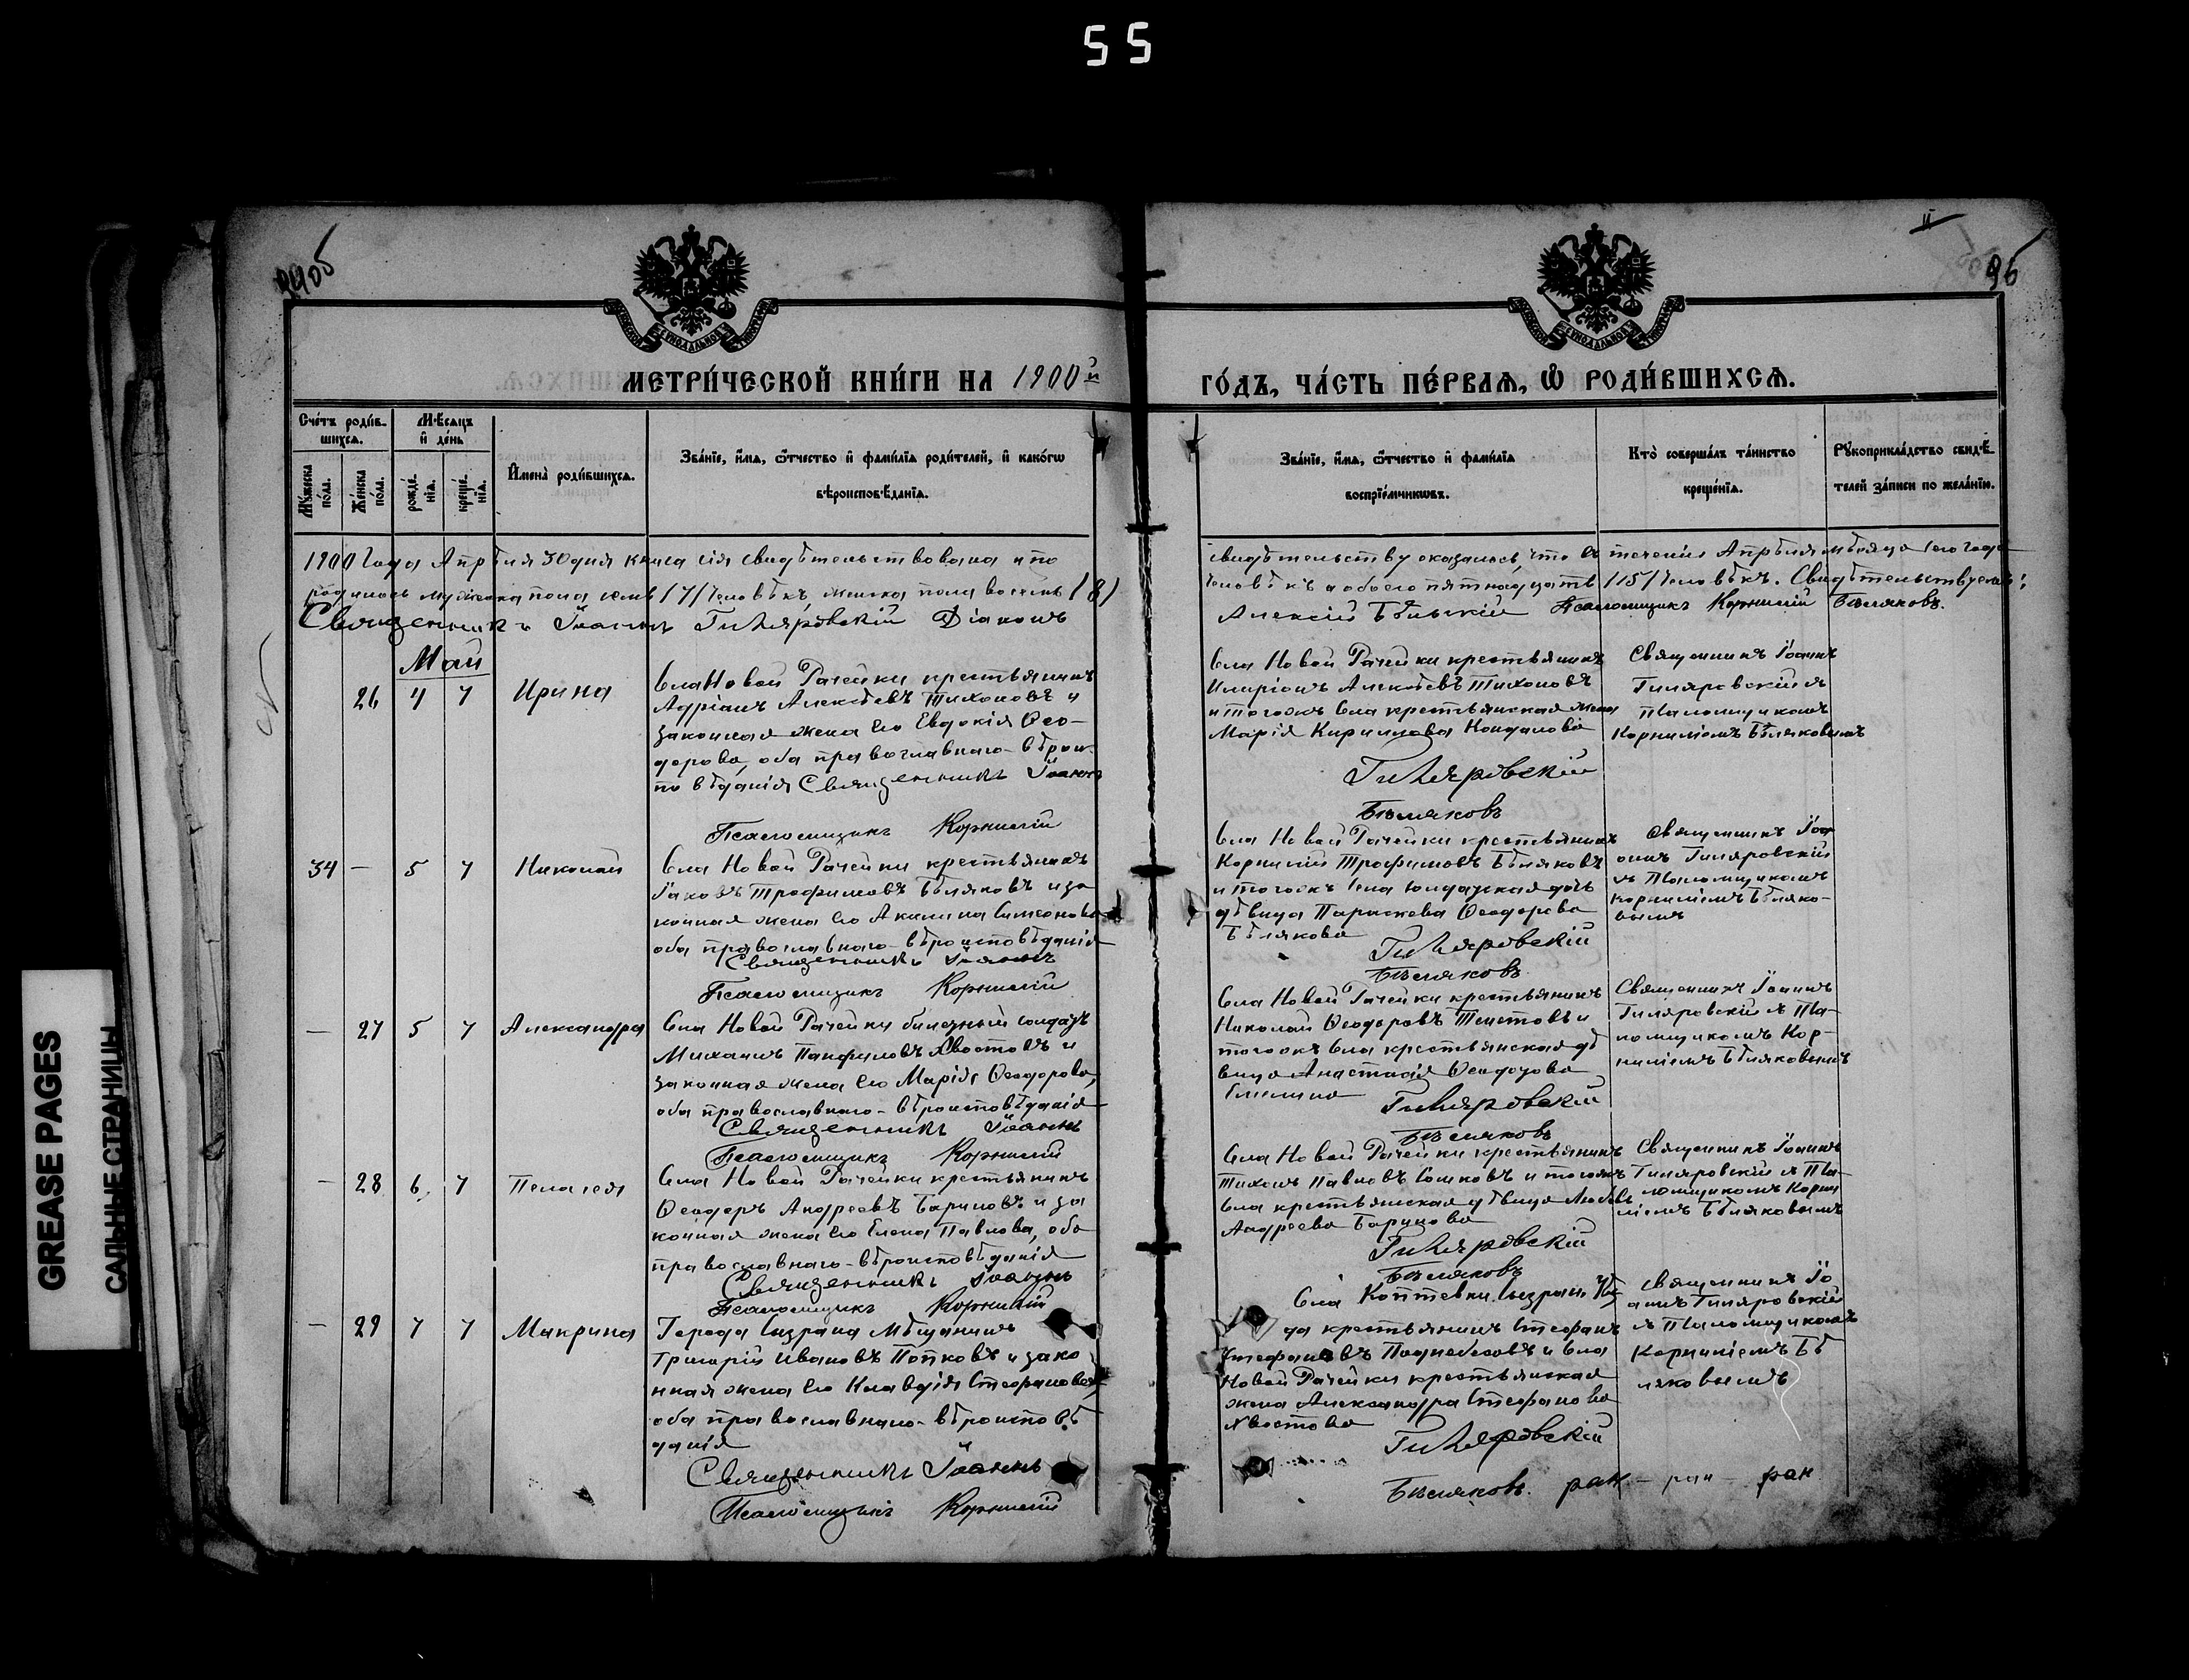 55
94об
95
МЕТРИ́ЧЕСКОЙ КНИ́ГИ НА 1900й
ГО́ДЪ, ЧА́СТЬ ПЕ́РВАѦ, Ѡ҆ РОДИ́ВШИХСѦ.
Сче́тъ роди́в-
шихсѧ.
Мꙋ́жеска по́ла.
Же́нска по́ла.
Мѣ́сяцъ и҆ де́нь
рожде́нїѧ.
креще́нїѧ.
И҆мена̀ роди́вшихсѧ.
Зва́нїе, и҆́мѧ, ѻ҆́тчество и҆ фами́лїѧ роди́телей, и҆ како́гѡ
вѣроисповѣ́данїѧ.
Зва́нїе, и҆́мѧ, ѻ҆́тчество и҆ фами́лїѧ
воспрїе́мникѡвъ.
Кто̀ соверша́лъ та́инство
креще́нїѧ.
Рꙋкоприкла́дство свидѣ́-
телей за́писи по жела́нїю.
1900 года Апрѣля 30 дня книга сія свидѣтельствована и по
свидѣтельству оказалось, что въ теченіи Апрѣля мѣсяца сего года
родилось мужеска пола семь /7/ человѣкъ, женска пола восемь /8/
человѣкъ а обоего пятнадцать /15/ человѣкъ. Свидѣтельствуемъ:
Священникъ Іоаннъ Гиляровскій Діаконъ
Алексій Бѣльскій Псаломщикъ Корнилій Бѣляковъ.
Май
26 4 7 Ирина
Села Новой Рачейки крестьянинъ
Адріанъ Алексѣевъ Тихоновъ и
законная жена его Евдокія Ѳео-
дорова, оба православнаго вѣрои-
повѣданія Священникъ Іоаннъ
Псаломщикъ Корнилій
Села Новой Рачейки крестьянинъ
Иларіонъ Алексѣевъ Тихоновъ
и тогожъ села крестьянская жена
Марія Кириллова
Гиляровскій
Бѣляковъ
Священникъ Іоаннъ
Гиляровскій съ
Псаломщикомъ
Корниліемъ Бѣляковымъ
34 — 5 7 Николай
Села Новой Рачейки крестьянинъ
Іаковъ Трофимовъ Бѣляковъ и за
конная жена его Акилина Симеонова
оба православнаго вѣроисповѣданія
Священникъ Іоаннъ
Псаломщикъ Корнилій
Села Новой Рачейки крестьянинъ
Корнилій Трофимовъ Бѣляковъ
и тогожъ села солдатская дочь
дѣвица Параскева Ѳеодорова
Бѣлякова
Гиляровскій
Бѣляковъ
Священникъ Іоа
ннъ Гиляровскій
съ Псаломщикомъ
Корниліемъ Бѣляко-
вымъ
— 27 5 7 Александра
Села Новой Рачейки билетный солдатъ
Михаилъ Панфиловъ Хвостовъ и
законная жена его Марія Ѳеодорова,
оба православнаго вѣроисповѣданія
Священникъ Іоаннъ
Псаломщикъ Корнилій
Села Новой Рачейки крестьянинъ
Николай Ѳеодоровъ и
тогожъ села крестьянская дѣ
вица Анастасія
Гиляровскій
Бѣляковъ
Священникъ Іоаннъ
Гиляровскій съ Пса-
ломщикомъ Кор-
ниліемъ Бѣляковымъ
— 28 6 7 Пелагея
Села Новой Рачейки крестьянинъ
Ѳеодоръ Андреевъ Бариновъ и за
конная жена его Елена Павлова, оба
православнаго вѣроисповѣданія
Священникъ Іоаннъ
Псаломщикъ Корнилій
Села Новой Рачейки крестьянинъ
Тихонъ Павловъ и тогожъ
села крестьянская дѣвица Любовь
Андреева Баринова
Гиляровскій
Бѣляковъ
Священникъ Іоаннъ
Гиляровскій съ Пса-
ломщикомъ Корни
ліемъ Бѣляковымъ
— 29 7 7 Макрина
Города Сызрана мѣщанинъ
Григорій Ивановъ Попковъ и зако
нная жена его Клавдія Стефанова,
оба православнаго вѣроисповѣ
данія
Священникъ Іоаннъ
Псаломщикъ Корнилій
Села Коптевки Сызран. Уѣз
да крестьянинъ Стефанъ
Стефановъ Поднебесовъ и села
Новой Рачейки крестьянская
жена Александра Стефанова
Хвостова
Гиляровскій
Бѣляковъ.
Священникъ Іо
аннъ Гиляровскій
съ Псаломщикомъ
Корниліемъ Бѣ
ляковымъ
GREASE PAGES
САЛЬНЫЕ СТРАНИЦЫ